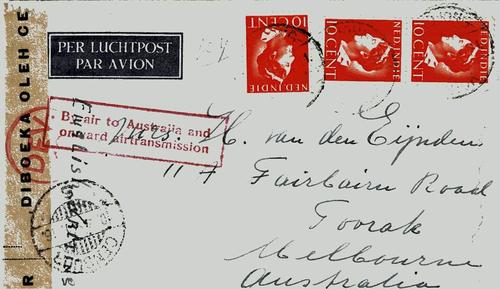 PER LUCHTPOST
PAR AVION
10 CENT
NED. INDIE
10 CENT
NED. INDIE
10 CENT
NED. INDIE
DIBOEKA OLEH CE
R
By air to Australia and
onward airtransmission
English
Mrs. H. van den Eijnden
117 Fairbairn Road
Toorak
Melbourne
Australia